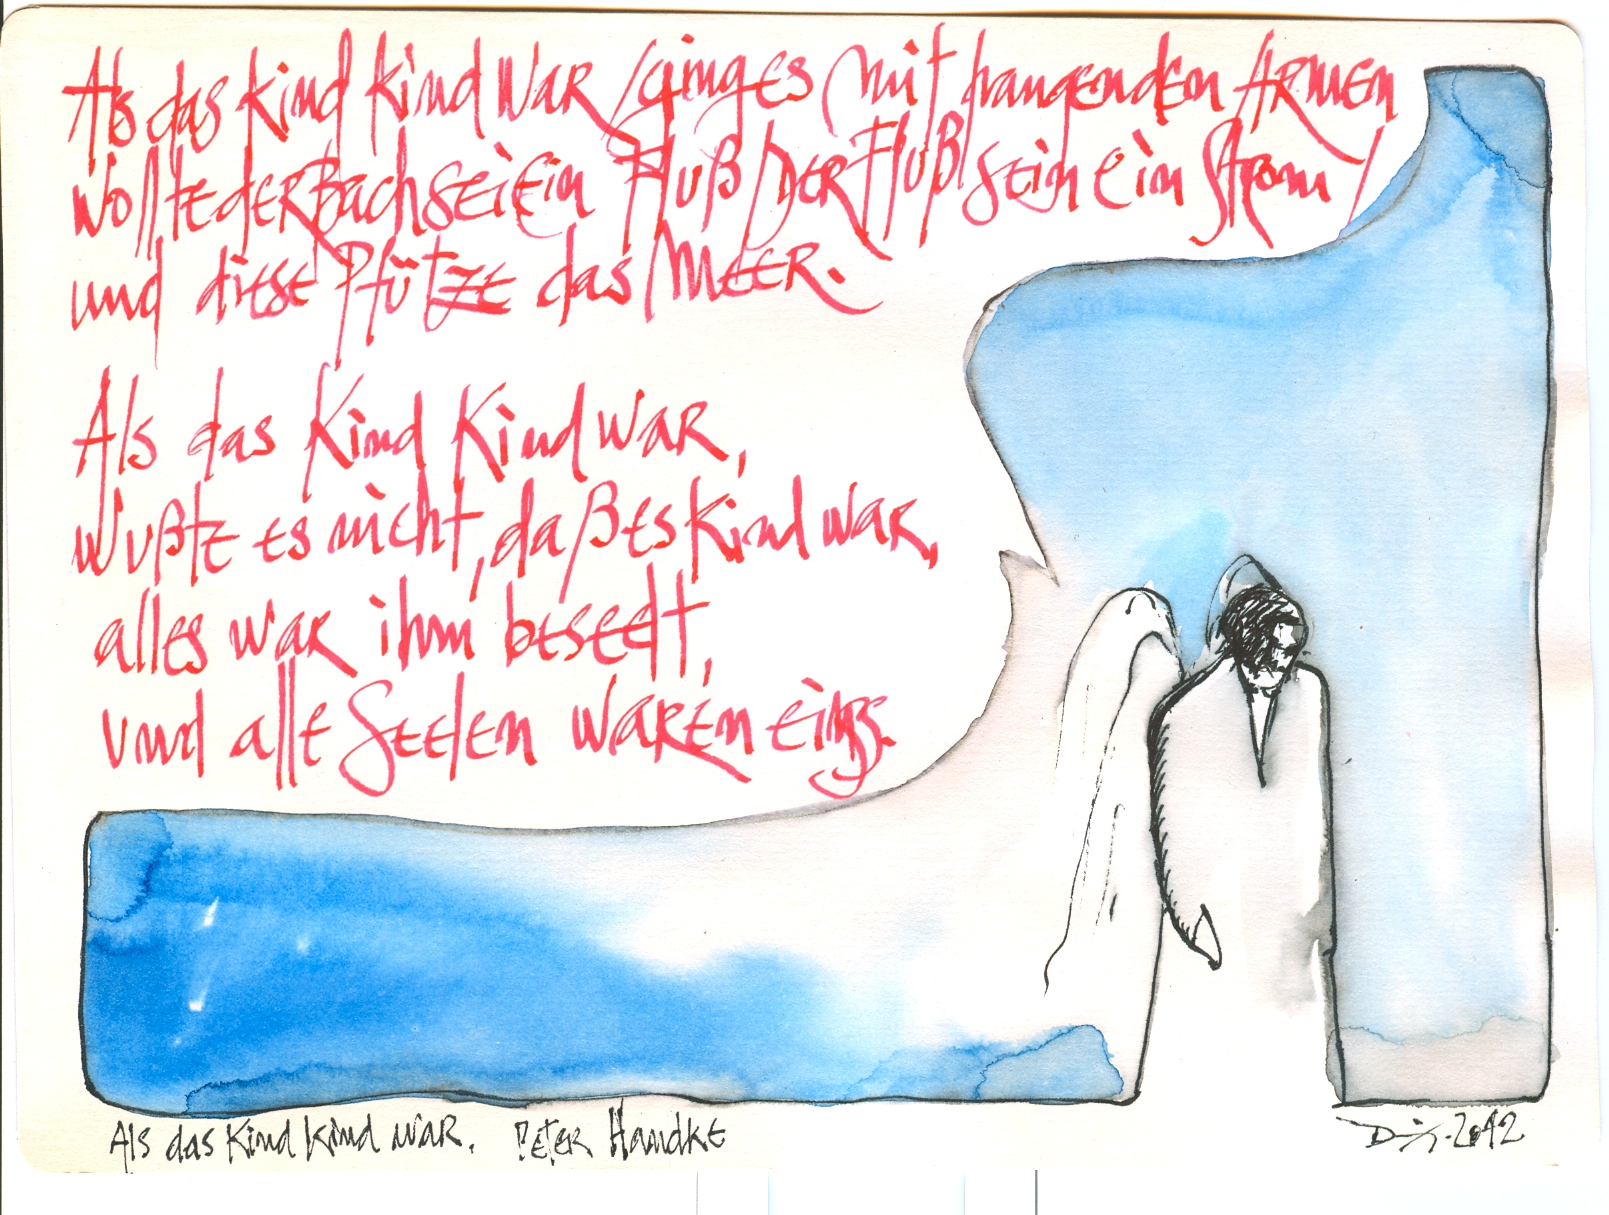 Als das Kind Kind war / ging es mit hangenden Armen
wollte der Bach sei ein Fluß / Der Fluß sein ein Strom /
und diese Pfütze das Meer.
Als das Kind Kind war,
wußte es nicht, daß es Kind war,
alles war ihm beseelt,
und alle Seelen waren eins.
Als das Kind Kind war. Peter Handke
2012